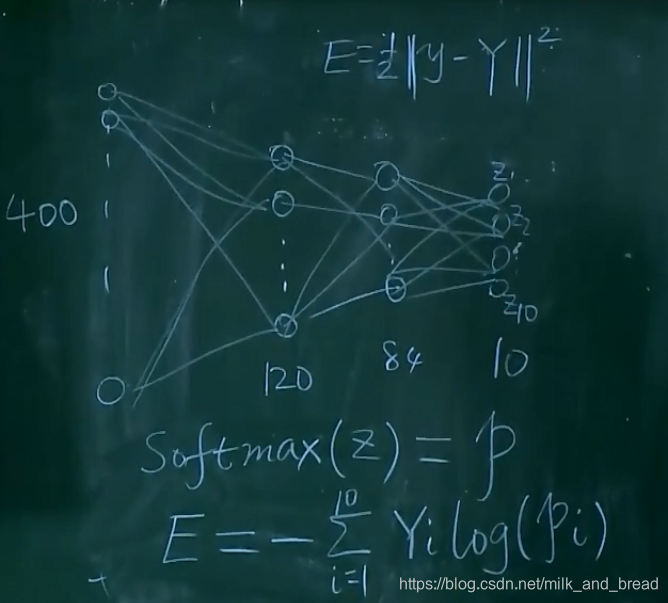 E=½||y-Y||²
z₁
400
z₂
z₁₀
120
84
10
Softmax(z) = p
E = -∑ᵢ₌₁¹⁰ Yi log(pi)
https://blog.csdn.net/milk_and_bread